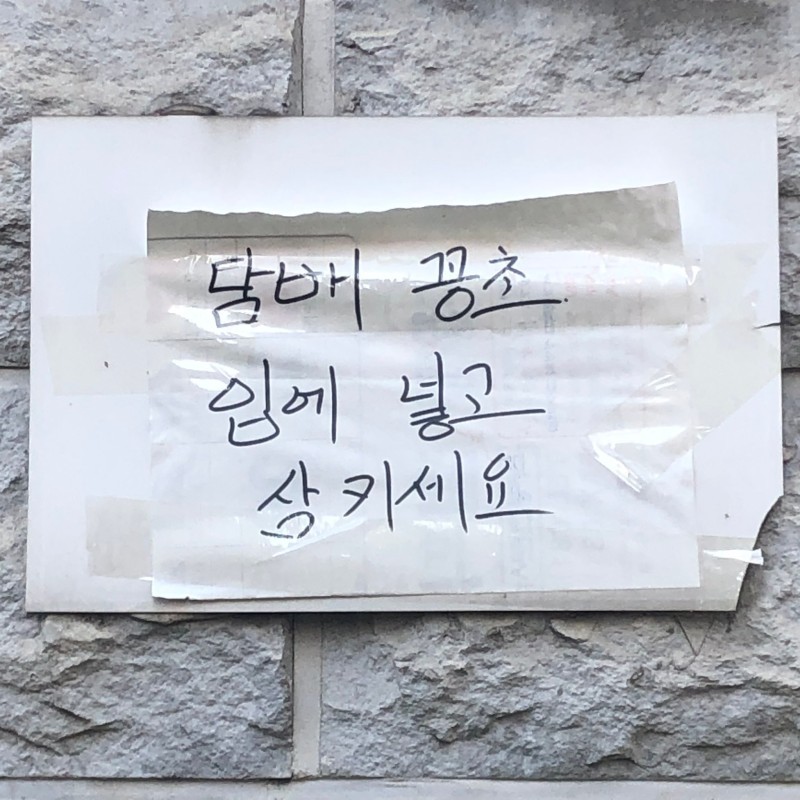 담배 꽁초
입에 넣고
삼키세요